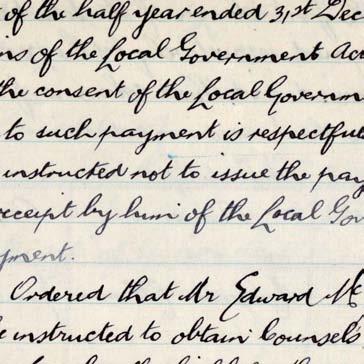 of the half year ended 31st Dec
ns of the Local Government Act
the consent of the Local Governm
to such payment is respectful
instructed not to issue the pay
receipt by him of the Local Gov
yment.
Ordered that Mr Edward Mc
e instructed to obtain Counsels